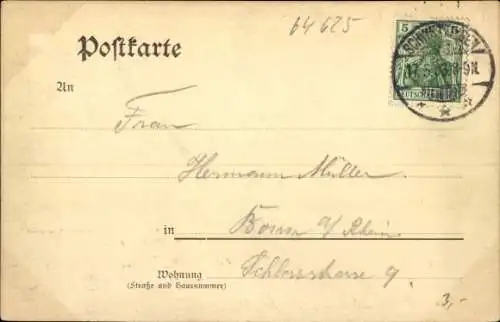 64625
Postkarte
5
An
Frau
Hermann Müller
in
Bonn a/ Rhein
Wohnung
Schlossstrasse 9
(Straße und Hausnummer)
3,-